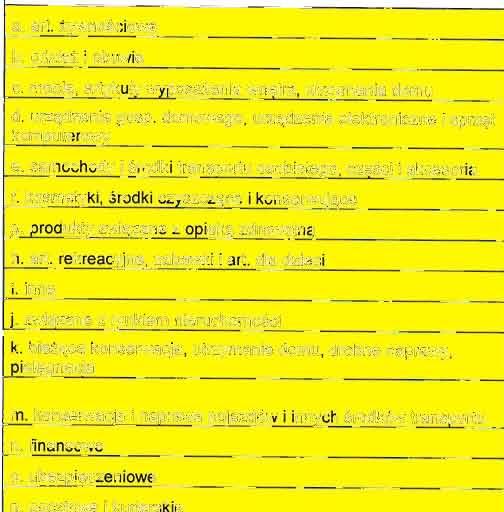 a. art. żywnościowe
b. odzież i obuwie
c. meble, artykuły wyposażenia wnętrz, utrzymania domu
d. urządzenia gosp. domowego, urządzenia elektroniczne i sprzęt
komputerowy
e. samochody i środki transportu osobistego, części i akcesoria
f. kosmetyki, środki czyszczące i konserwujące
g. produkty związane z opieką zdrowotną
h. art. rekreacyjne, zabawki i art. dla dzieci
i. inne
j. związane z rynkiem nieruchomości
k. bieżąca konserwacja, utrzymanie domu, drobne naprawy,
pielęgnacja
m. konserwacja i naprawa pojazdów i innych środków transportu
n. finansowe
o. ubezpieczeniowe
p. pocztowe i kurierskie